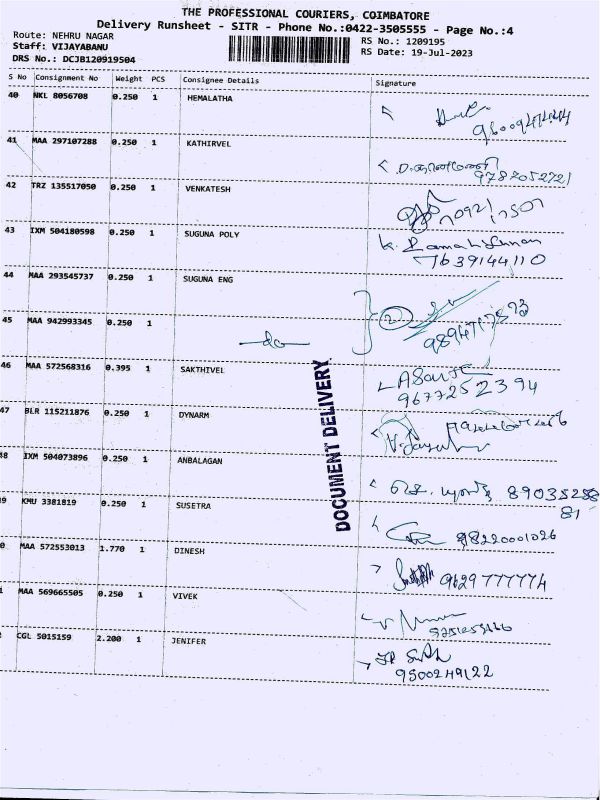 THE PROFESSIONAL COURIERS, COIMBATORE
Delivery Runsheet - SITR - Phone No.:0422-3505555 - Page No.:4
Route: NEHRU NAGAR
RS No.: 1209195
Staff: VIJAYABANU
RS Date: 19-Jul-2023
DRS No.: DCJB120919504
S No Consignment No Weight PCS Consignee Details Signature
40 NKL 8056708 0.250 1 HEMALATHA
41 MAA 297107288 0.250 1 KATHIRVEL
9787052721
42 TRZ 135517050 0.250 1 VENKATESH
43 IXM 504180598 0.250 1 SUGUNA POLY K.
7639144110
44 MAA 293545737 0.250 1 SUGUNA ENG
2
45 MAA 942993345 0.250 1
do
46 MAA 572568316 0.395 1 SAKTHIVEL
9677252394
47 BLR 115211876 0.250 1 DYNARM
DOCUMENT DELIVERY
48 IXM 504073896 0.250 1 ANBALAGAN
9 KMU 3381819 0.250 1 SUSETRA
98220001026
0 MAA 572553013 1.770 1 DINESH
9629777774
1 MAA 569665505 0.250 1 VIVEK
CGL 5015159 2.200 1 JENIFER
9500249122